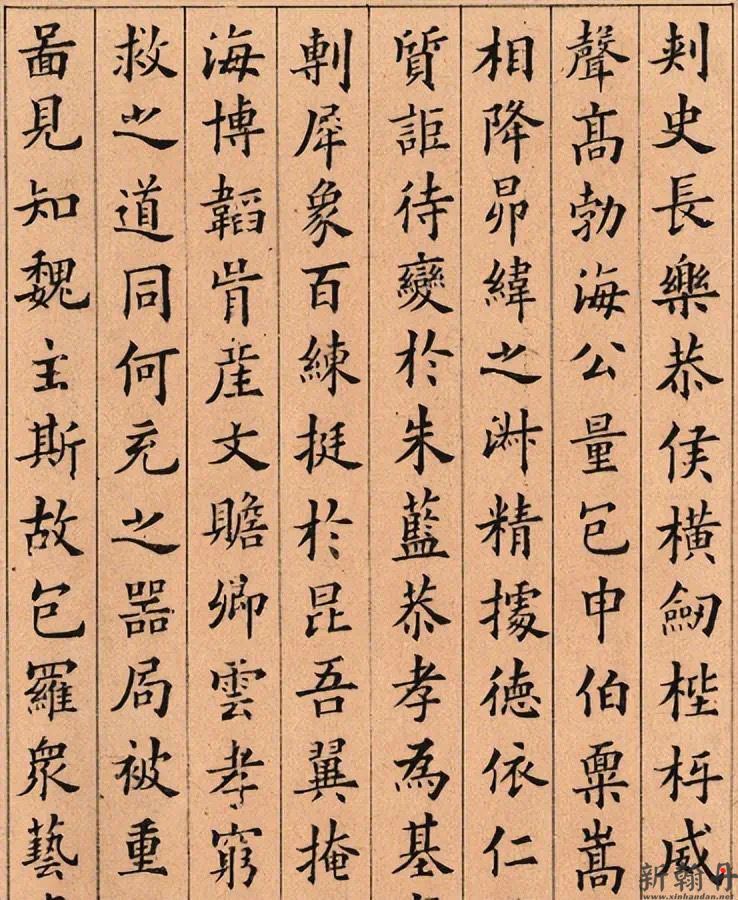 刺史長樂恭侯橫劒梐枑威
聲高勃海公量包申伯稟嵩
相降昴緯之淑精據德依仁
質詎待變於朱藍恭孝為基
剸犀象百練挺於昆吾翼掩
海博韜胄產文贍卿雲孝窮
救之道同何充之器局被重
啚見知魏主斯故包羅眾藝
新翰丹
www.xinhandan.net